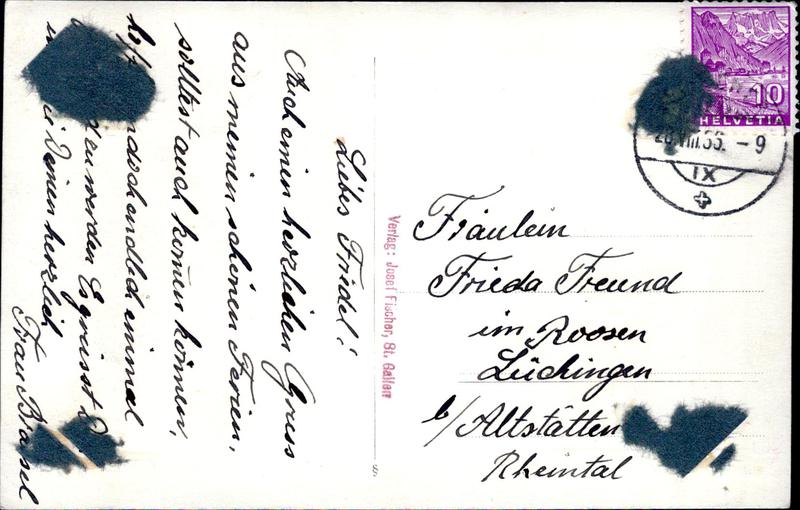 Liebes Friedel!
Auch einen herzlichen Gruss
aus meinen schönen Ferien,
solltest auch kommen können,
doch endlich einmal
werden Es grüsst
Deinen herzlich
Frau Basel
Verlag: Josef Fischer, St. Gallen
10
HELVETIA
- 9
IX
Fräulein
Frieda Freund
im Roosen
Lüchingen
b/Altstätten
Rheintal